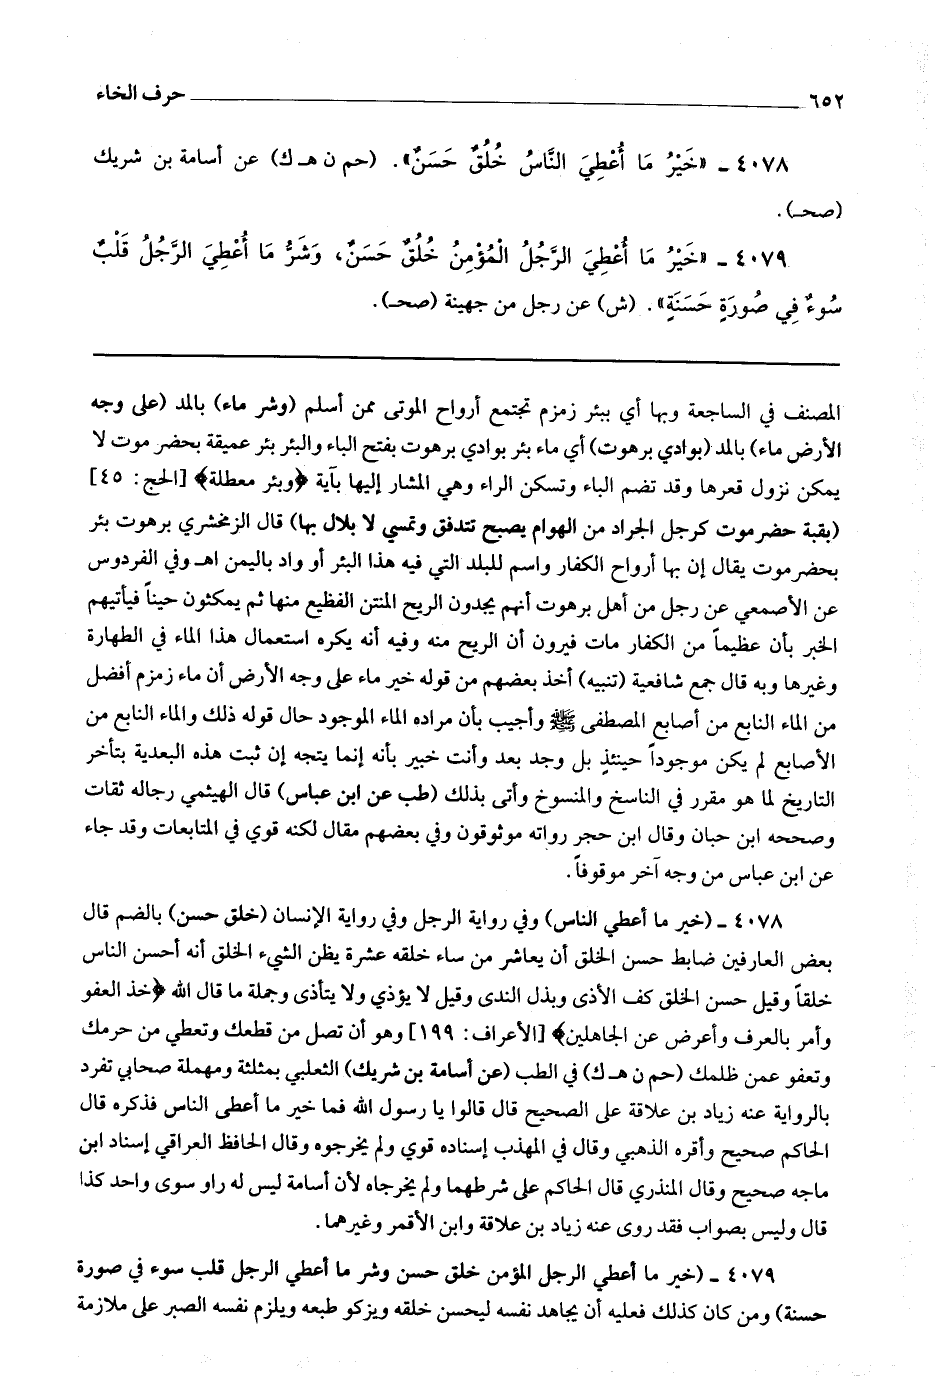 ٦٥٢ حرف الخاء
٤٠٧٨ ـ «خَيْرُ مَا أُعْطِيَ النَّاسُ خُلُقٌ حَسَنٌ». (حم ن هـ ك) عن أسامة بن شريك
(صحـ).
٤٠٧٩ ـ «خَيْرُ مَا أُعْطِيَ الرَّجُلُ الْمُؤْمِنُ خُلُقٌ حَسَنٌ، وَشَرُّ مَا أُعْطِيَ الرَّجُلُ قَلْبُ
سُوءٌ فِي صُورَةٍ حَسَنَةٍ». (ش) عن رجل من جهينة (صحـ).
المصنف في الساجعة وبها أي ببئر زمزم تجتمع أرواح الموتى ممن أسلم (وشر ماء) بالمد (على وجه
الأرض ماء) بالمد (بوادي برهوت) أي ماء بئر بوادي برهوت بفتح الباء والبئر بئر عميقة بحضر موت لا
يمكن نزول قعرها وقد تضم الباء وتسكن الراء وهي المشار إليها بآية ﴿وبئر معطلة﴾ [الحج: ٤٥]
(بقبة حضرموت كرجل الجراد من الهوام يصبح تتدفق وتمسي لا بلال بها) قال الزمخشري برهوت بئر
بحضرموت يقال إن بها أرواح الكفار واسم للبلد التي فيه هذا البئر أو واد باليمن اهـ وفي الفردوس
عن الأصمعي عن رجل من أهل برهوت أنهم يجدون الريح المنتن الفظيع منها ثم يمكثون حيناً فيأتيهم
الخبر بأن عظيماً من الكفار مات فيرون أن الريح منه وفيه أنه يكره استعمال هذا الماء في الطهارة
وغيرها وبه قال جمع شافعية (تنبيه) أخذ بعضهم من قوله خير ماء على وجه الأرض أن ماء زمزم أفضل
من الماء النابع من أصابع المصطفى ﷺ وأجيب بأن مراده الماء الموجود حال قوله ذلك والماء النابع من
الأصابع لم يكن موجوداً حينئذٍ بل وجد بعد وأنت خبير بأنه إنما يتجه إن ثبت هذه البعدية بتأخر
التاريخ لما هو مقرر في الناسخ والمنسوخ وأتى بذلك (طب عن ابن عباس) قال الهيثمي رجاله ثقات
وصححه ابن حبان وقال ابن حجر رواته موثوقون وفي بعضهم مقال لكنه قوي في المتابعات وقد جاء
عن ابن عباس من وجه آخر موقوفاً.
٤٠٧٨ ـ (خير ما أعطي الناس) وفي رواية الرجل وفي رواية الإنسان (خلق حسن) بالضم قال
بعض العارفين ضابط حسن الخلق أن يعاشر من ساء خلقه عشرة يظن الشيء الخلق أنه أحسن الناس
خلقاً وقيل حسن الخلق كف الأذى وبذل الندى وقيل لا يؤذي ولا يتأذى وجملة ما قال الله ﴿خذ العفو
وأمر بالعرف وأعرض عن الجاهلين﴾ [الأعراف: ١٩٩] وهو أن تصل من قطعك وتعطي من حرمك
وتعفو عمن ظلمك (حم ن هـ ك) في الطب (عن أسامة بن شريك) الثعلبي بمثلثة ومهملة صحابي تفرد
بالرواية عنه زياد بن علاقة على الصحيح قال قالوا يا رسول الله فما خير ما أعطى الناس فذكره قال
الحاكم صحيح وأقره الذهبي وقال في المهذب إسناده قوي ولم يخرجوه وقال الحافظ العراقي إسناد ابن
ماجه صحيح وقال المنذري قال الحاكم على شرطهما ولم يخرجاه لأن أسامة ليس له راو سوى واحد كذا
قال وليس بصواب فقد روى عنه زياد بن علاقة وابن الأقمر وغيرهما.
٤٠٧٩ ـ (خير ما أعطي الرجل المؤمن خلق حسن وشر ما أعطي الرجل قلب سوء في صورة
حسنة) ومن كان كذلك فعليه أن يجاهد نفسه ليحسن خلقه ويزكو طبعه ويلزم نفسه الصبر على ملازمة